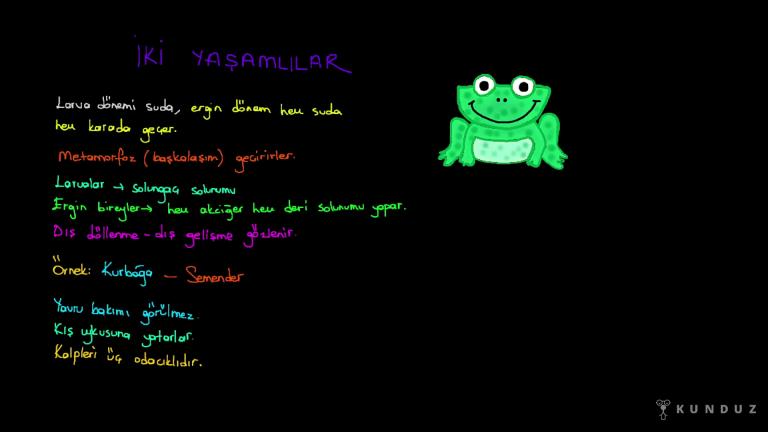 İKİ YAŞAMLILAR
Larva dönemi suda, ergin dönem hem suda
hem karada geçer.
Metamorfoz (başkalaşım) geçirirler.
Larvalar → solungaç solunumu
Ergin bireyler → hem akciğer hem deri solunumu yapar.
Dış döllenme - dış gelişme gözlenir.
Örnek: Kurbağa - Semender
Yavru bakımı görülmez.
Kış uykusuna yatarlar.
Kalpleri üç odacıklıdır.
KUNDUZ